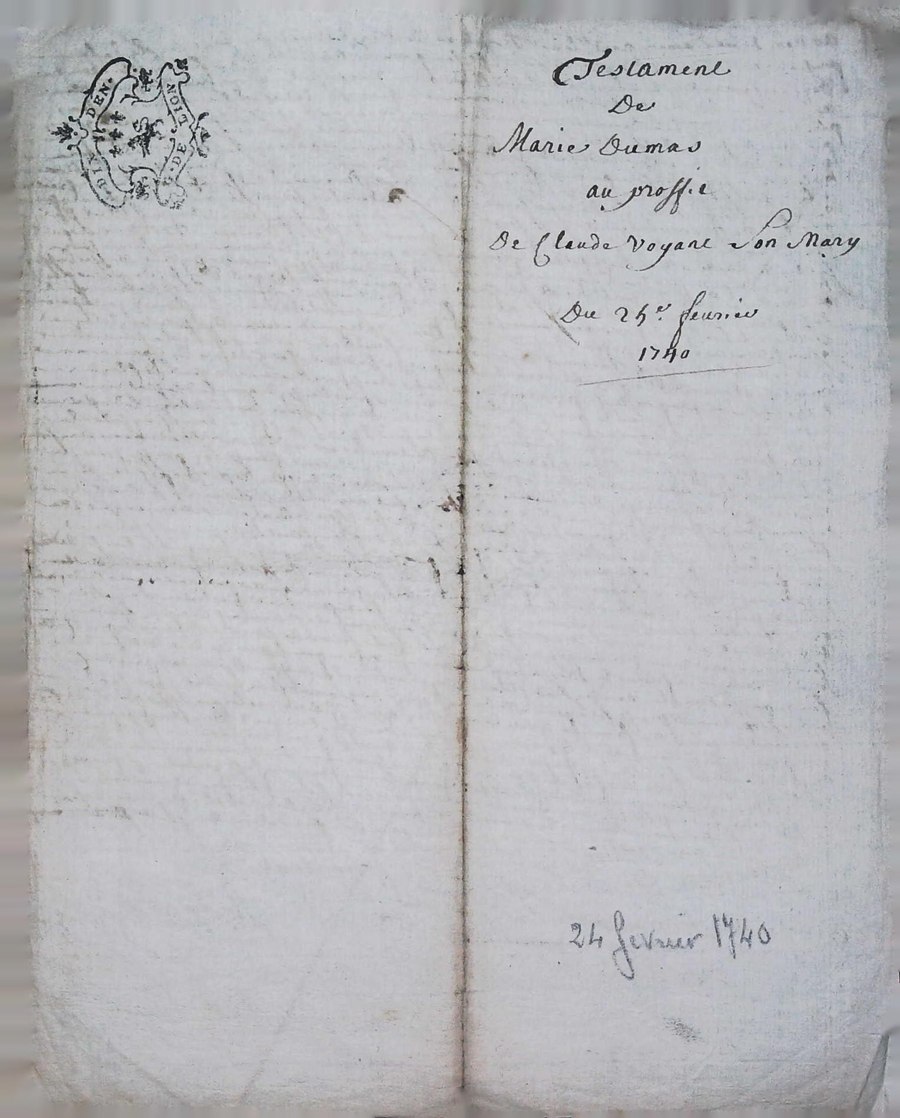 DIX DEN.
G. DE LION
Testament
De
Marie Dumas
au proffit
De Claude Voyant Son Mary
Du 24e. feurier
1740
24 fevrier 1740